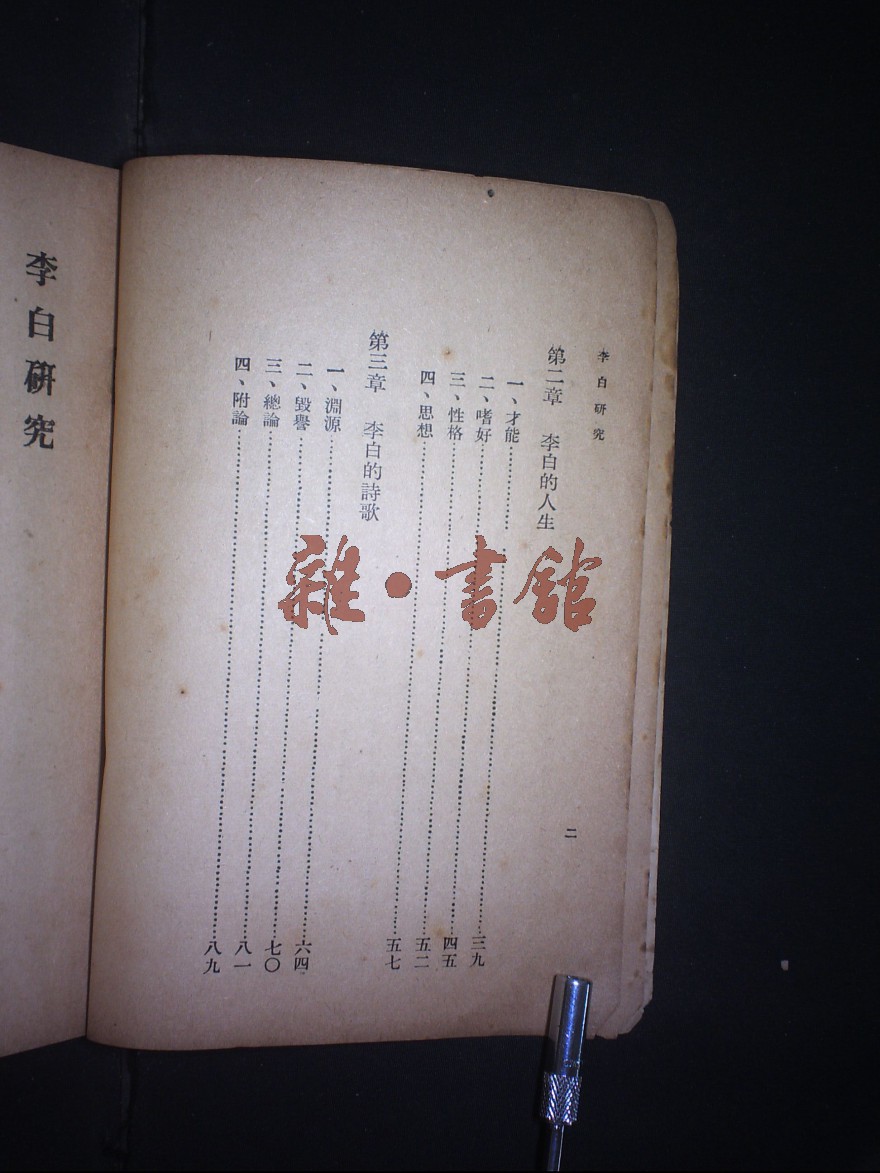 李白研究
二
第二章　李白的人生
一、才能……三九
二、嗜好……四五
三、性格……五二
四、思想……五七
第三章　李白的詩歌
一、淵源……六四
二、毀譽……七〇
三、總論……八一
四、附論……八九
李白研究
雜·書館